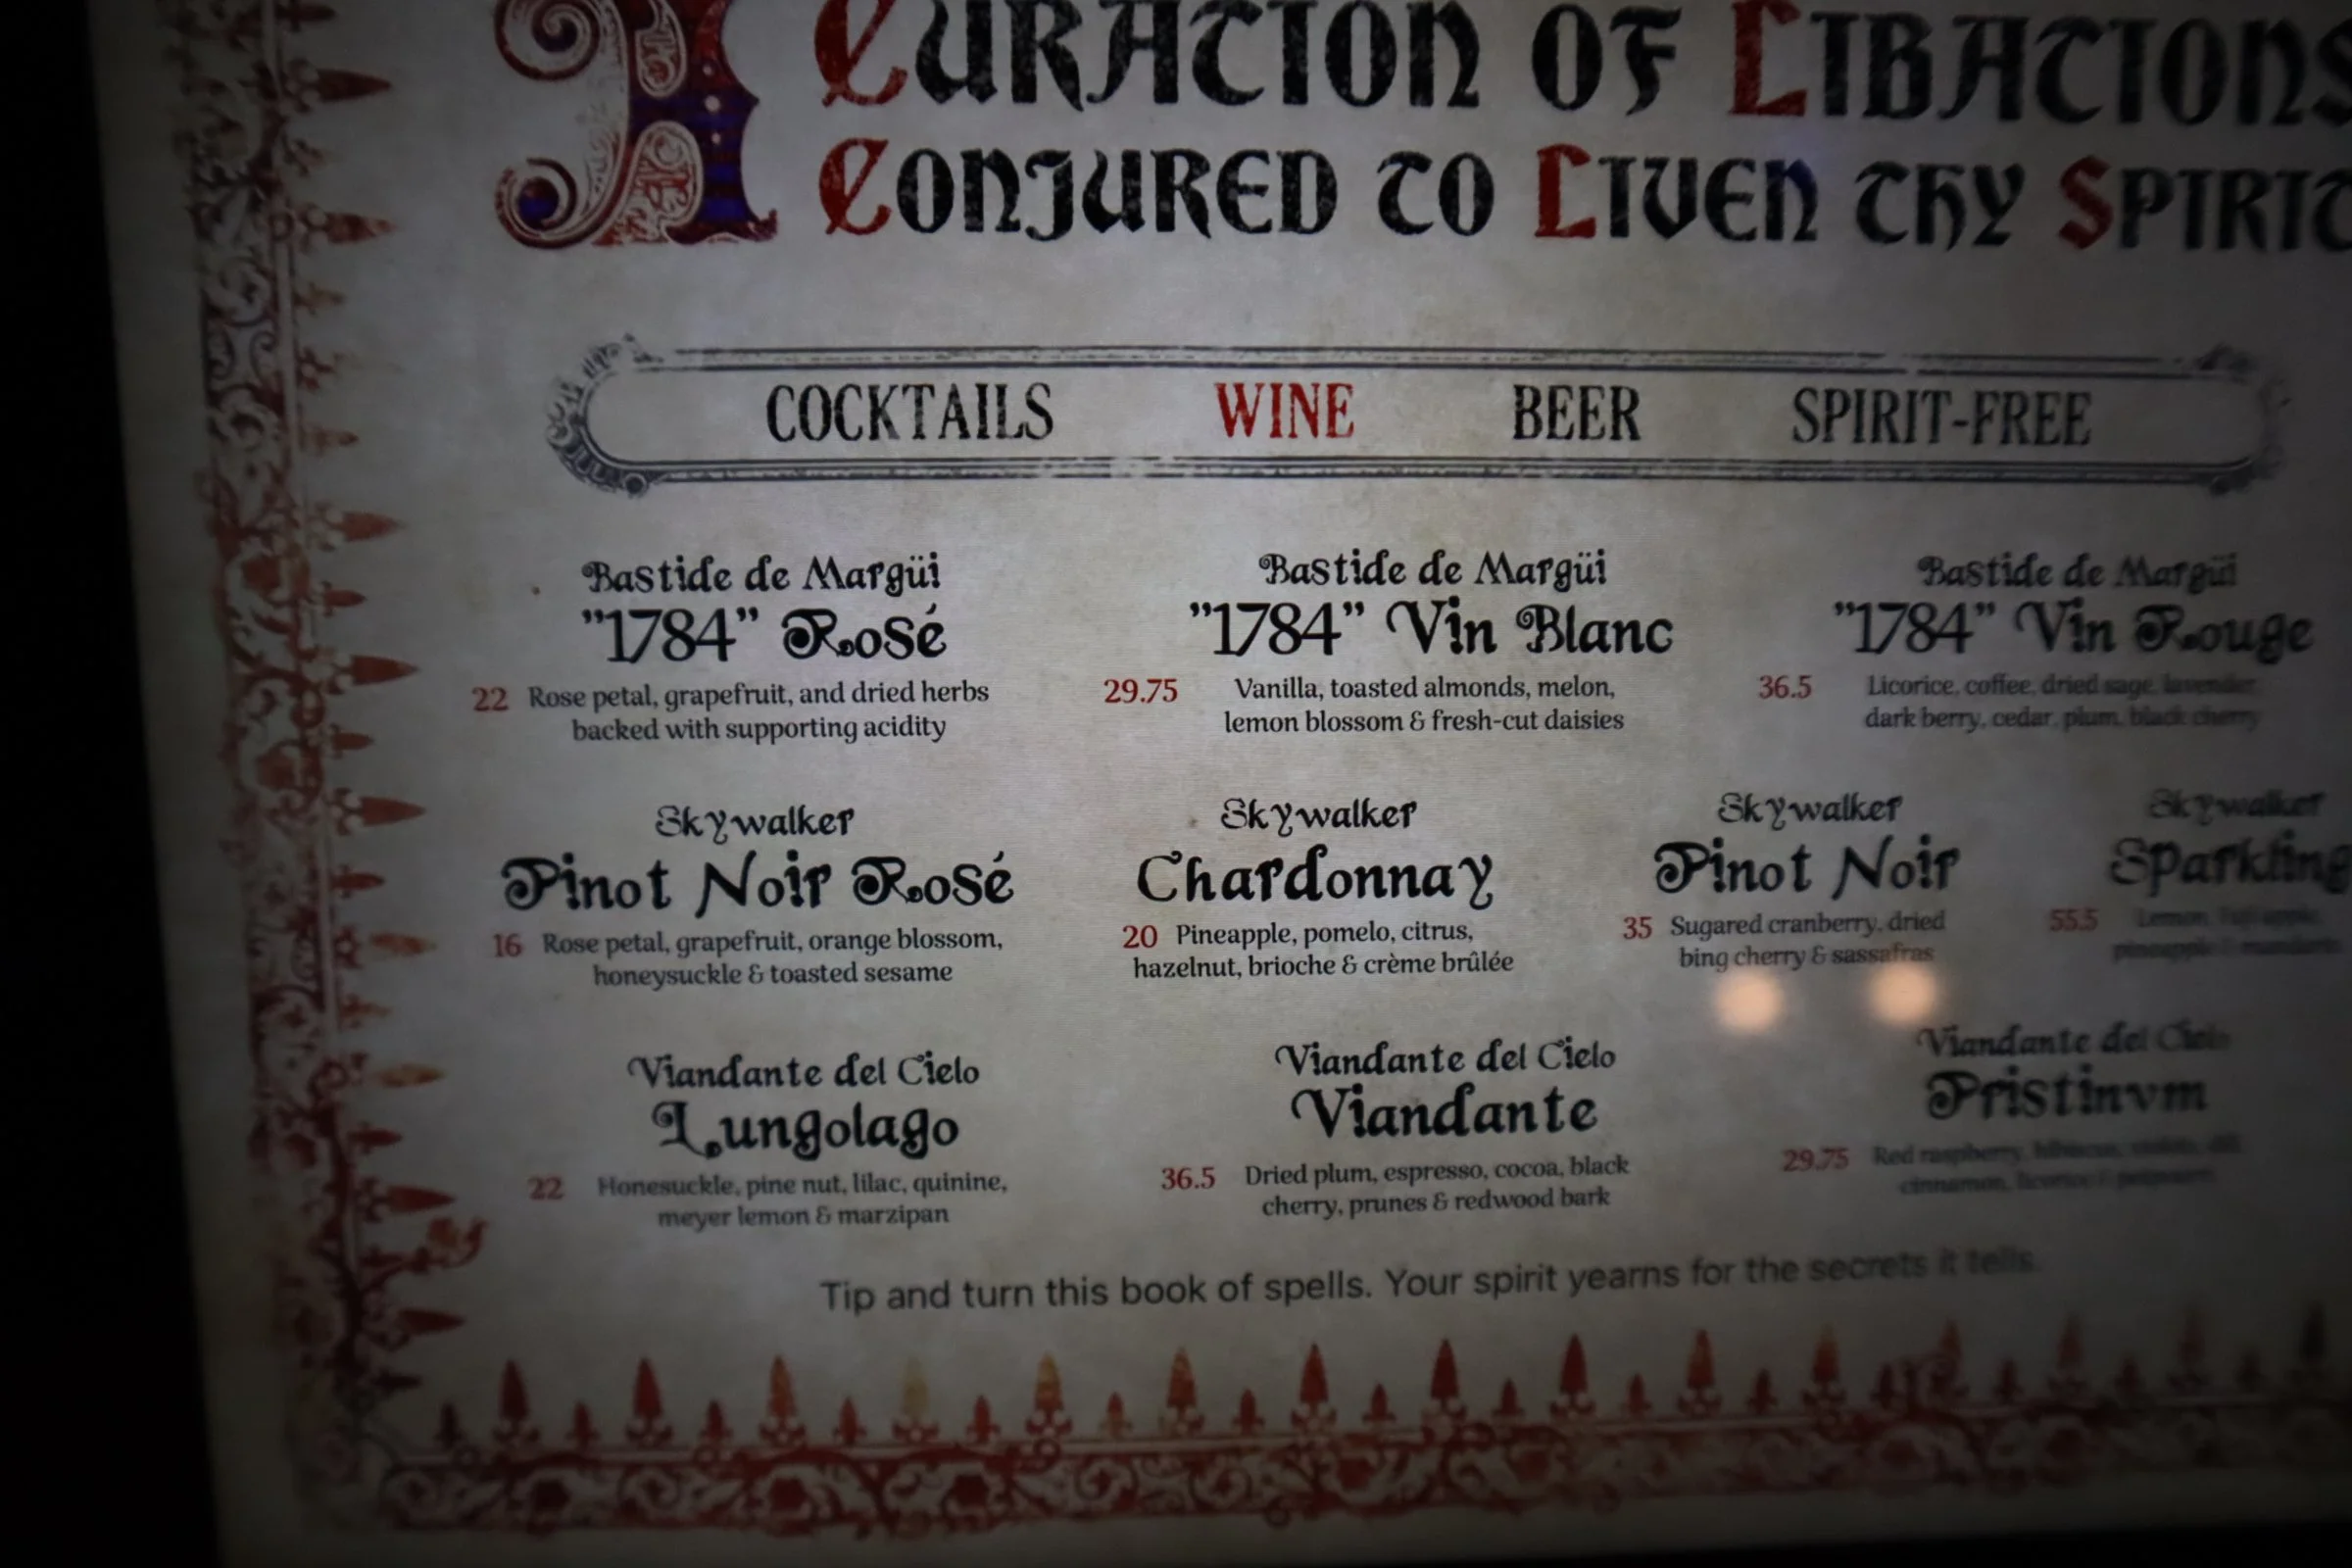 A CURATION OF LIBATIONS
CONJURED TO LIVEN THY SPIRIT
COCKTAILS WINE BEER SPIRIT-FREE
Bastide de Margüi
"1784" Rosé
22 Rose petal, grapefruit, and dried herbs
backed with supporting acidity
Bastide de Margüi
"1784" Vin Blanc
29.75 Vanilla, toasted almonds, melon,
lemon blossom & fresh-cut daisies
Bastide de Margüi
"1784" Vin Rouge
36.5 Licorice, coffee, dried sage, lavender,
dark berry, cedar, plum, black cherry
Skywalker
Pinot Noir Rosé
16 Rose petal, grapefruit, orange blossom,
honeysuckle & toasted sesame
Skywalker
Chardonnay
20 Pineapple, pomelo, citrus,
hazelnut, brioche & crème brûlée
Skywalker
Pinot Noir
35 Sugared cranberry, dried
bing cherry & sassafras
Skywalker
Sparkling
55.5 Lemon,
Viandante del Cielo
Lungolago
22 Honesuckle, pine nut, lilac, quinine,
meyer lemon & marzipan
Viandante del Cielo
Viandante
36.5 Dried plum, espresso, cocoa, black
cherry, prunes & redwood bark
Viandante del Cielo
Pristinvm
29.75 Red raspberry,
cinnamon,
Tip and turn this book of spells. Your spirit yearns for the secrets it tells